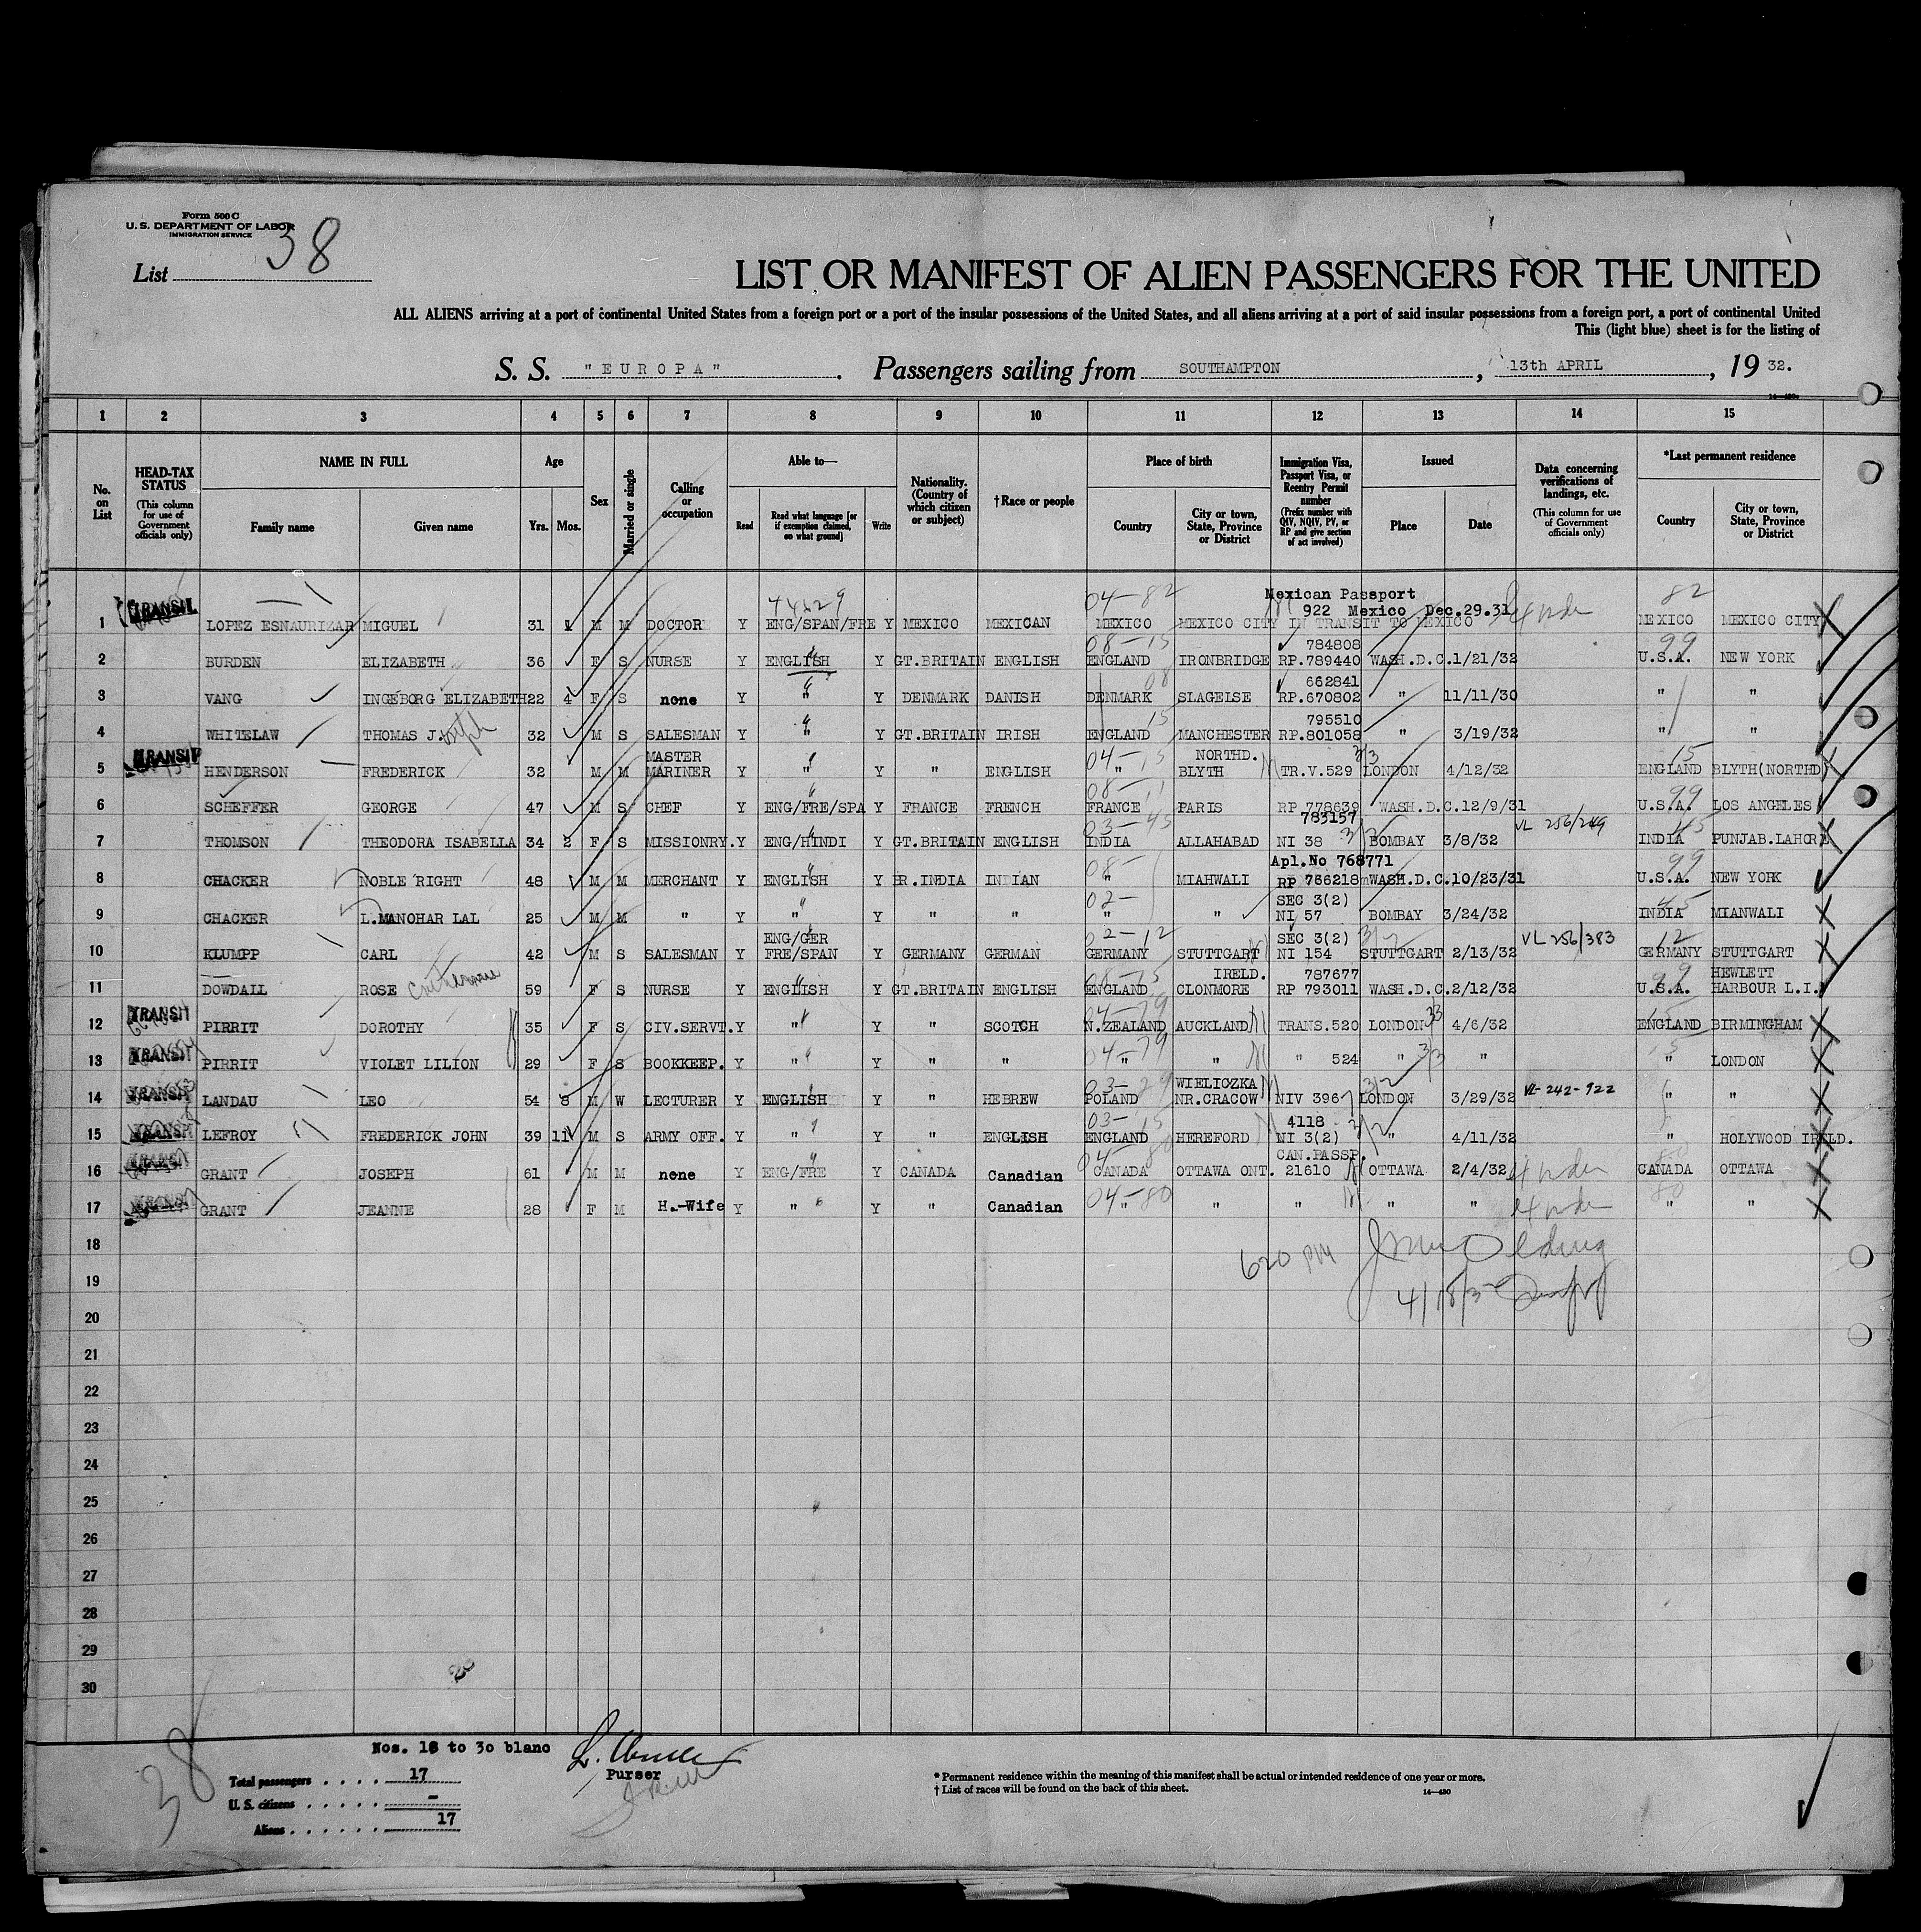 Form 500 C
U. S. DEPARTMENT OF LABOR
IMMIGRATION SERVICE
List 38
LIST OR MANIFEST OF ALIEN PASSENGERS FOR THE UNITED
ALL ALIENS arriving at a port of continental United States from a foreign port or a port of the insular possessions of the United States, and all aliens arriving at a port of said insular possessions from a foreign port, a port of continental United
This (light blue) sheet is for the listing of
S. S. "EUROPA". Passengers sailing from SOUTHAMPTON, 13th APRIL, 1932.
14—480
1 2 3 4 5 6 7 8 9 10 11 12 13 14 15
No. on List
HEAD-TAX STATUS (This column for use of Government officials only)
NAME IN FULL
Family name
Given name
Age
Yrs. Mos.
Sex
Married or single
Calling or occupation
Able to—
Read
Read what language [or if exemption claimed, on what ground]
Write
Nationality. (Country of which citizen or subject)
†Race or people
Place of birth
Country
City or town, State, Province or District
Immigration Visa, Passport Visa, or Reentry Permit number (Prefix number with QIV, NQIV, PV, or RP and give section of act involved)
Issued
Place
Date
Data concerning verifications of landings, etc. (This column for use of Government officials only)
*Last permanent residence
Country
City or town, State, Province or District
TRANSIT 04-82 Mexican Passport 82
922 Mexico Dec.29.31
1 LOPEZ ESNAURIZAR MIGUEL 31 1 M M DOCTOR Y ENG/SPAN/FRE Y MEXICO MEXICAN MEXICO MEXICO CITY IN TRANSIT TO MEXICO MEXICO MEXICO CITY
08-15 784808 99
2 BURDEN ELIZABETH 36 F S NURSE Y ENGLISH Y GT.BRITAIN ENGLISH ENGLAND IRONBRIDGE RP.789440 WASH.D.C.1/21/32 U.S.A. NEW YORK
08 662841
3 VANG INGEBORG ELIZABETH 22 4 F S none Y " Y DENMARK DANISH DENMARK SLAGELSE RP.670802 " 11/11/30 " "
15 795510
4 WHITELAW THOMAS J. 32 M S SALESMAN Y " Y GT.BRITAIN IRISH ENGLAND MANCHESTER RP.801058 " 3/19/32 " "
TRANSIT MASTER 04-15 NORTHD. 3/3 15
5 HENDERSON FREDERICK 32 M M MARINER Y " Y " ENGLISH " BLYTH TR.V.529 LONDON 4/12/32 ENGLAND BLYTH(NORTHD)
08-11 99
6 SCHEFFER GEORGE 47 M S CHEF Y ENG/FRE/SPA Y FRANCE FRENCH FRANCE PARIS RP 778639 WASH.D.C.12/9/31 U.S.A. LOS ANGELES
03-45 783157 VL 256/249 45
7 THOMSON THEODORA ISABELLA 34 2 F S MISSIONRY. Y ENG/HINDI Y GT.BRITAIN ENGLISH INDIA ALLAHABAD NI 38 3/2 BOMBAY 3/8/32 INDIA PUNJAB.LAHORE
08- Apl.No 768771 99
8 CHACKER NOBLE RIGHT 48 M M MERCHANT Y ENGLISH Y BR.INDIA INDIAN " MIAHWALI RP 766218 WASH.D.C.10/23/31 U.S.A. NEW YORK
02- SEC 3(2) 45
9 CHACKER L.MANOHAR LAL 25 M M " Y " Y " " " " NI 57 BOMBAY 3/24/32 INDIA MIANWALI
ENG/GER 02-12 SEC 3(2) 3/2 VL 256/383 12
10 KLUMPP CARL 42 M S SALESMAN Y FRE/SPAN Y GERMANY GERMAN GERMANY STUTTGART NI 154 STUTTGART 2/13/32 GERMANY STUTTGART
08-15 IRELD. 787677 99 HEWLETT
11 DOWDALL ROSE 59 F S NURSE Y ENGLISH Y GT.BRITAIN ENGLISH ENGLAND CLONMORE RP 793011 WASH.D.C.2/12/32 U.S.A. HARBOUR L.I.
TRANSIT 04-79 3/3
12 PIRRIT DOROTHY 35 F S CIV.SERVT. Y " Y " SCOTCH N.ZEALAND AUCKLAND TRANS.520 LONDON 4/6/32 ENGLAND BIRMINGHAM
TRANSIT 04-79 3/3
13 PIRRIT VIOLET LILION 29 F S BOOKKEEP. Y " Y " " " " " 524 " " " LONDON
TRANSIT 03-29 WIELICZKA 3/2
14 LANDAU LEO 54 8 M W LECTURER Y ENGLISH Y " HEBREW POLAND NR.CRACOW NIV 396 LONDON 3/29/32 VL-242-922 " "
TRANSIT 03-15 4118 3/2
15 LEFROY FREDERICK JOHN 39 11 M S ARMY OFF. Y " Y " ENGLISH ENGLAND HEREFORD NI 3(2) " 4/11/32 " HOLYWOOD IRELD.
TRANSIT 04-80 CAN.PASSP. 80
16 GRANT JOSEPH 61 M M none Y ENG/FRE Y CANADA Canadian CANADA OTTAWA ONT. 21610 OTTAWA 2/4/32 CANADA OTTAWA
04-80 80
17 GRANT JEANNE 28 F M H.-Wife Y " Y " Canadian " " " " " " "
18
620 PM
19
4/18/32
20
21
22
23
24
25
26
27
28
29
30
38
Nos. 18 to 30 blanc
Purser
Total passengers . . . . 17
U. S. citizens . . . . . -
Aliens . . . . . . 17
* Permanent residence within the meaning of this manifest shall be actual or intended residence of one year or more.
† List of races will be found on the back of this sheet.
14—480